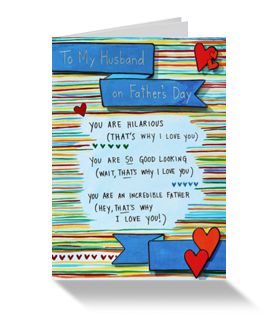 To My Husband
on Father's Day
YOU ARE HILARIOUS
(THAT'S WHY I LOVE YOU)
YOU ARE SO GOOD LOOKING
(WAIT, THAT'S WHY I LOVE YOU)
YOU ARE AN INCREDIBLE FATHER
(HEY, THAT'S WHY
I LOVE YOU!)